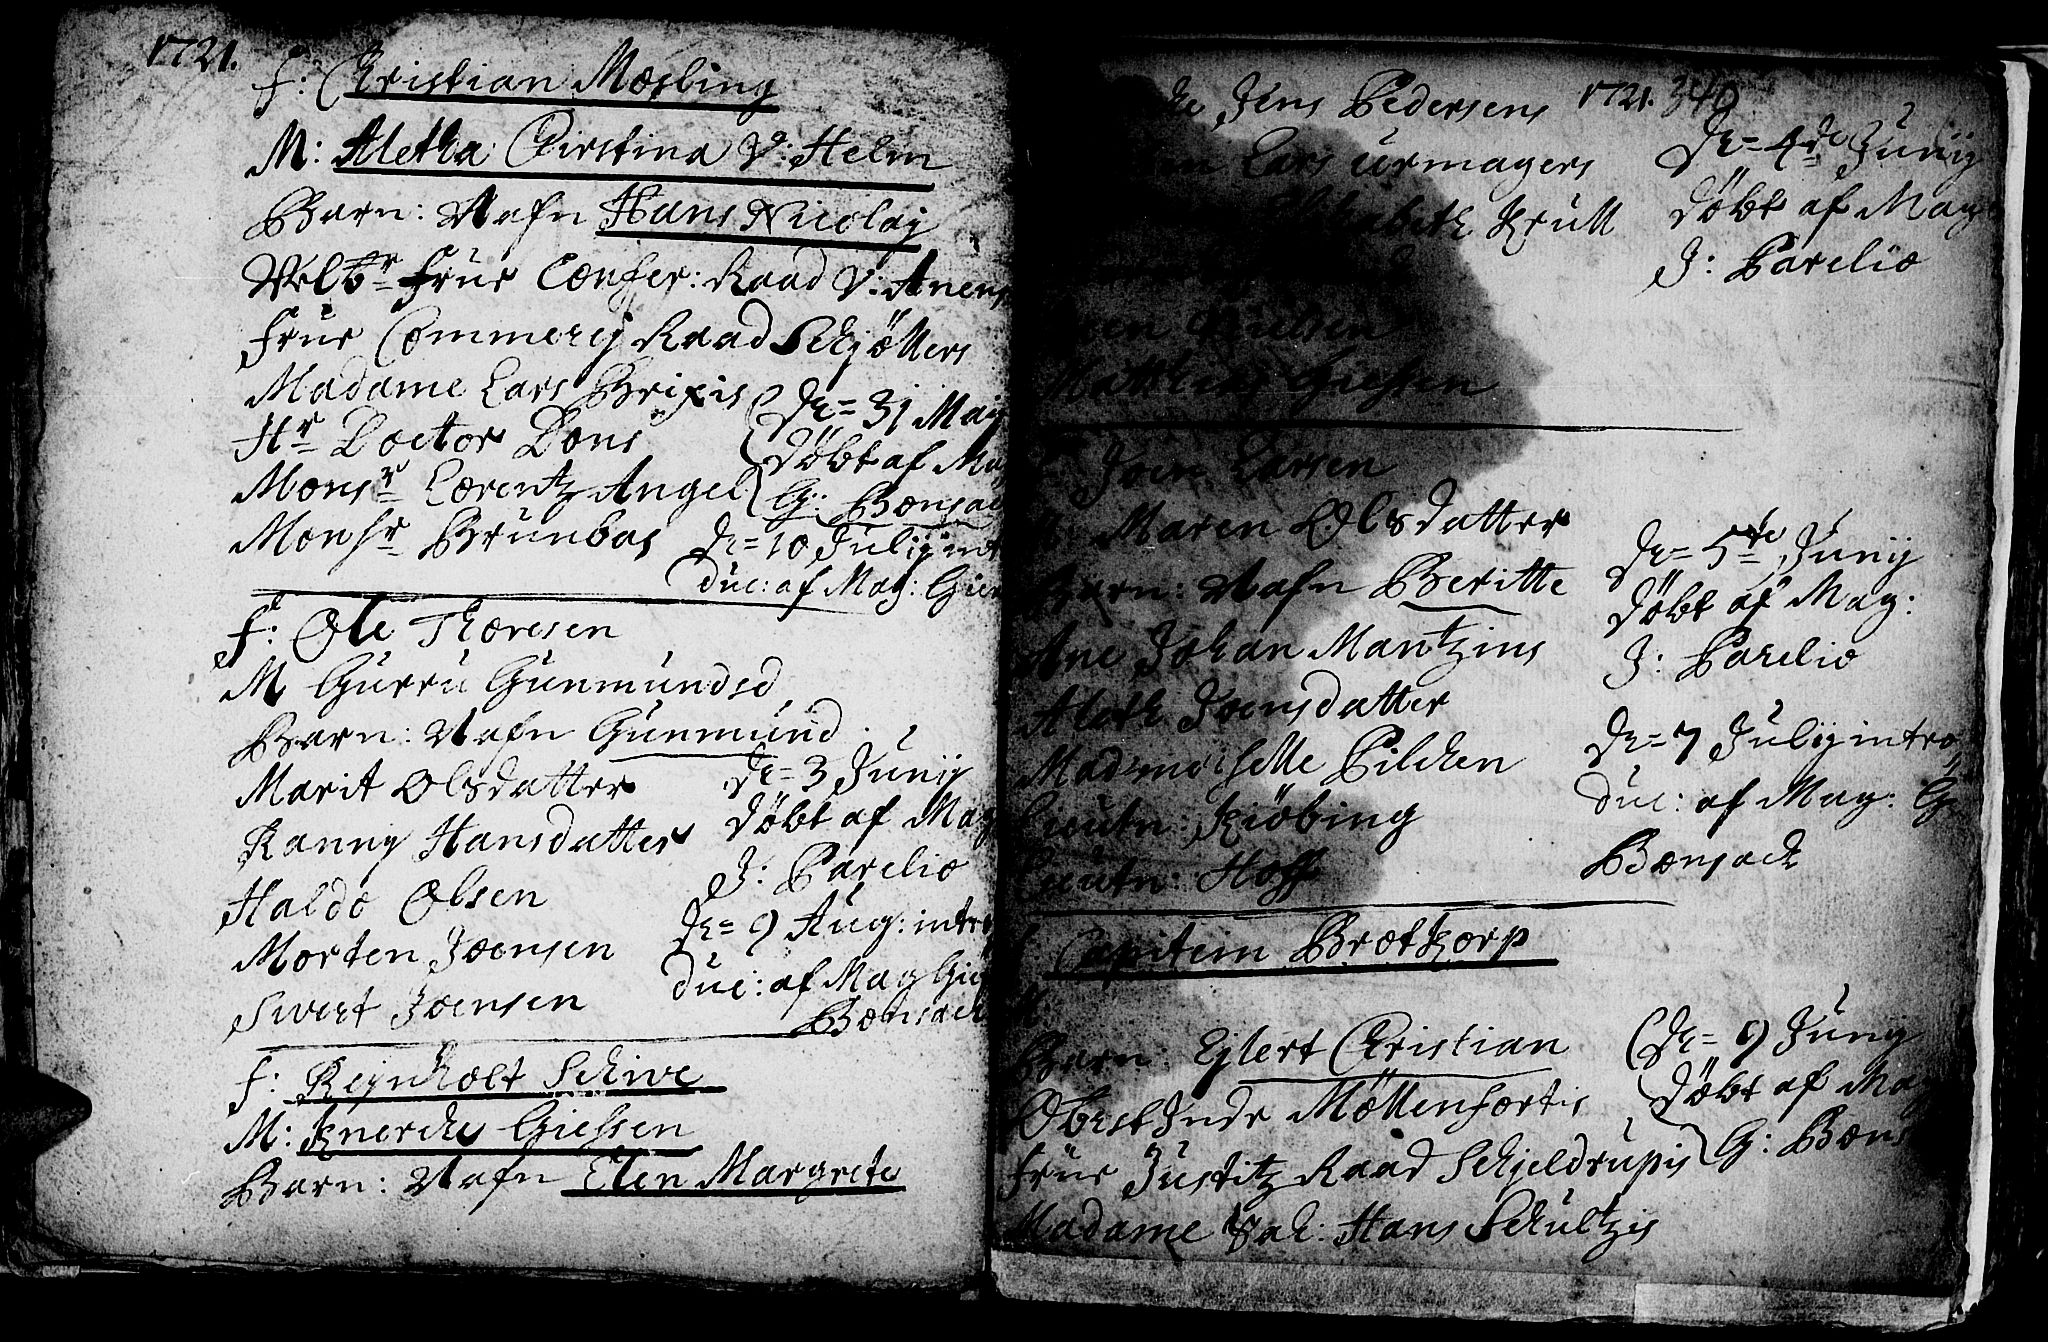 1721.
F: Christian Mæsling
M: Aletha Christina V: Helm
Barn: Nafn Hans Nicolaj
Velbr Frue Confer: Raad V: Anens
Frue Commercj Raad Schjöllers
Madame Lars Brixis
Hr Doctor Dons
Monsr Lorentz Angel
Monsr Brunbas
De= 31 Maij
Döbt af Ma
G: Bonsac
De= 10 Julij int
duc: af Mag: Gier
F: Ole Thoresen
M Gurru Gunmundsd
Barn: Nafn Gunmund
Marit Olsdatter
Ranny Hansdatter
Haldo Olsen
Morten Joensen
Sivert Joensen
De= 3 Junij
Döbt af Mag
J: Parelio
De= 9 Aug: intro
duc: af Mag Gie
Bonsack
F: Reynholt Schive
M: Knerche Giessen
Barn: Nafn Elen Margrete
1721. 340
Jens Pedersens
Lars urmagers
Elisabeth Krull
Nielsen
Giessen
De= 4de Junij
Döbt af Mag
J: Parelio
Joen Larsen
Maren Olsdatter
Barn: Nafn Beritte
Ane Johan Mantzins
Aleth Joensdatter
Madmoiselle Pilchen
Lieutn: Kiöbing
Lieutn: Hoff
De= 5te Junij
Döbt af Mag:
J: Parelio
De= 7 Julij intro
duc: af Mag: G
Bonsack
Capitein Brotkorp
M:
Barn: Ejlert Christian
Oberstinde Möllenfortis
Frue Justitz Raad Schjeldrupis
Madame Sal: Hans Schultzis
De= 9 Junij
Döbt af Mag
G: Bons